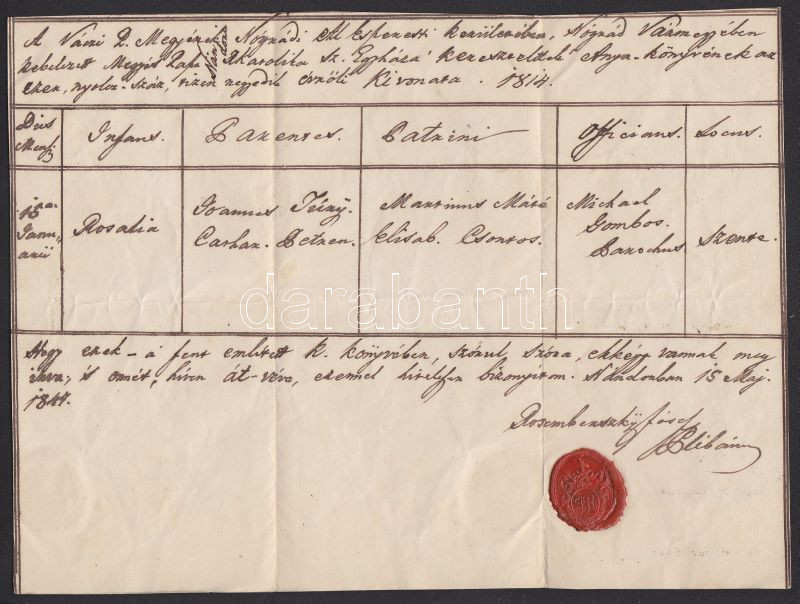 A Váczi P. Megyének Nógrádi Al Esperesti kerületében, Nógrád Vármegyében
kebelezett Nándor Rkatolika Sz. Egyháza' kereszteltek Anya-könyvének az
ezer, nyolcz-száz, tizen negyedik évröli Kivonata. 1814.
Dies Mensis
Infans.
Parentes.
Patrini
Officians.
Locus.
15 Januarii
Rosalia
Joannes
Cathar. Petren.
Martinus Máté
Elisab. Csontos.
Michael
Gombos.
Parochus
Szente.
Hogy ezek - a fent emlitett k. könyvében, szórul szóra, ekképp vannak meg
irva; is onnét, hiven át-véve, ezennel hitelesen bizonyitom. Nándorban 15 Maj.
1847.
József
Plébános
darabanth